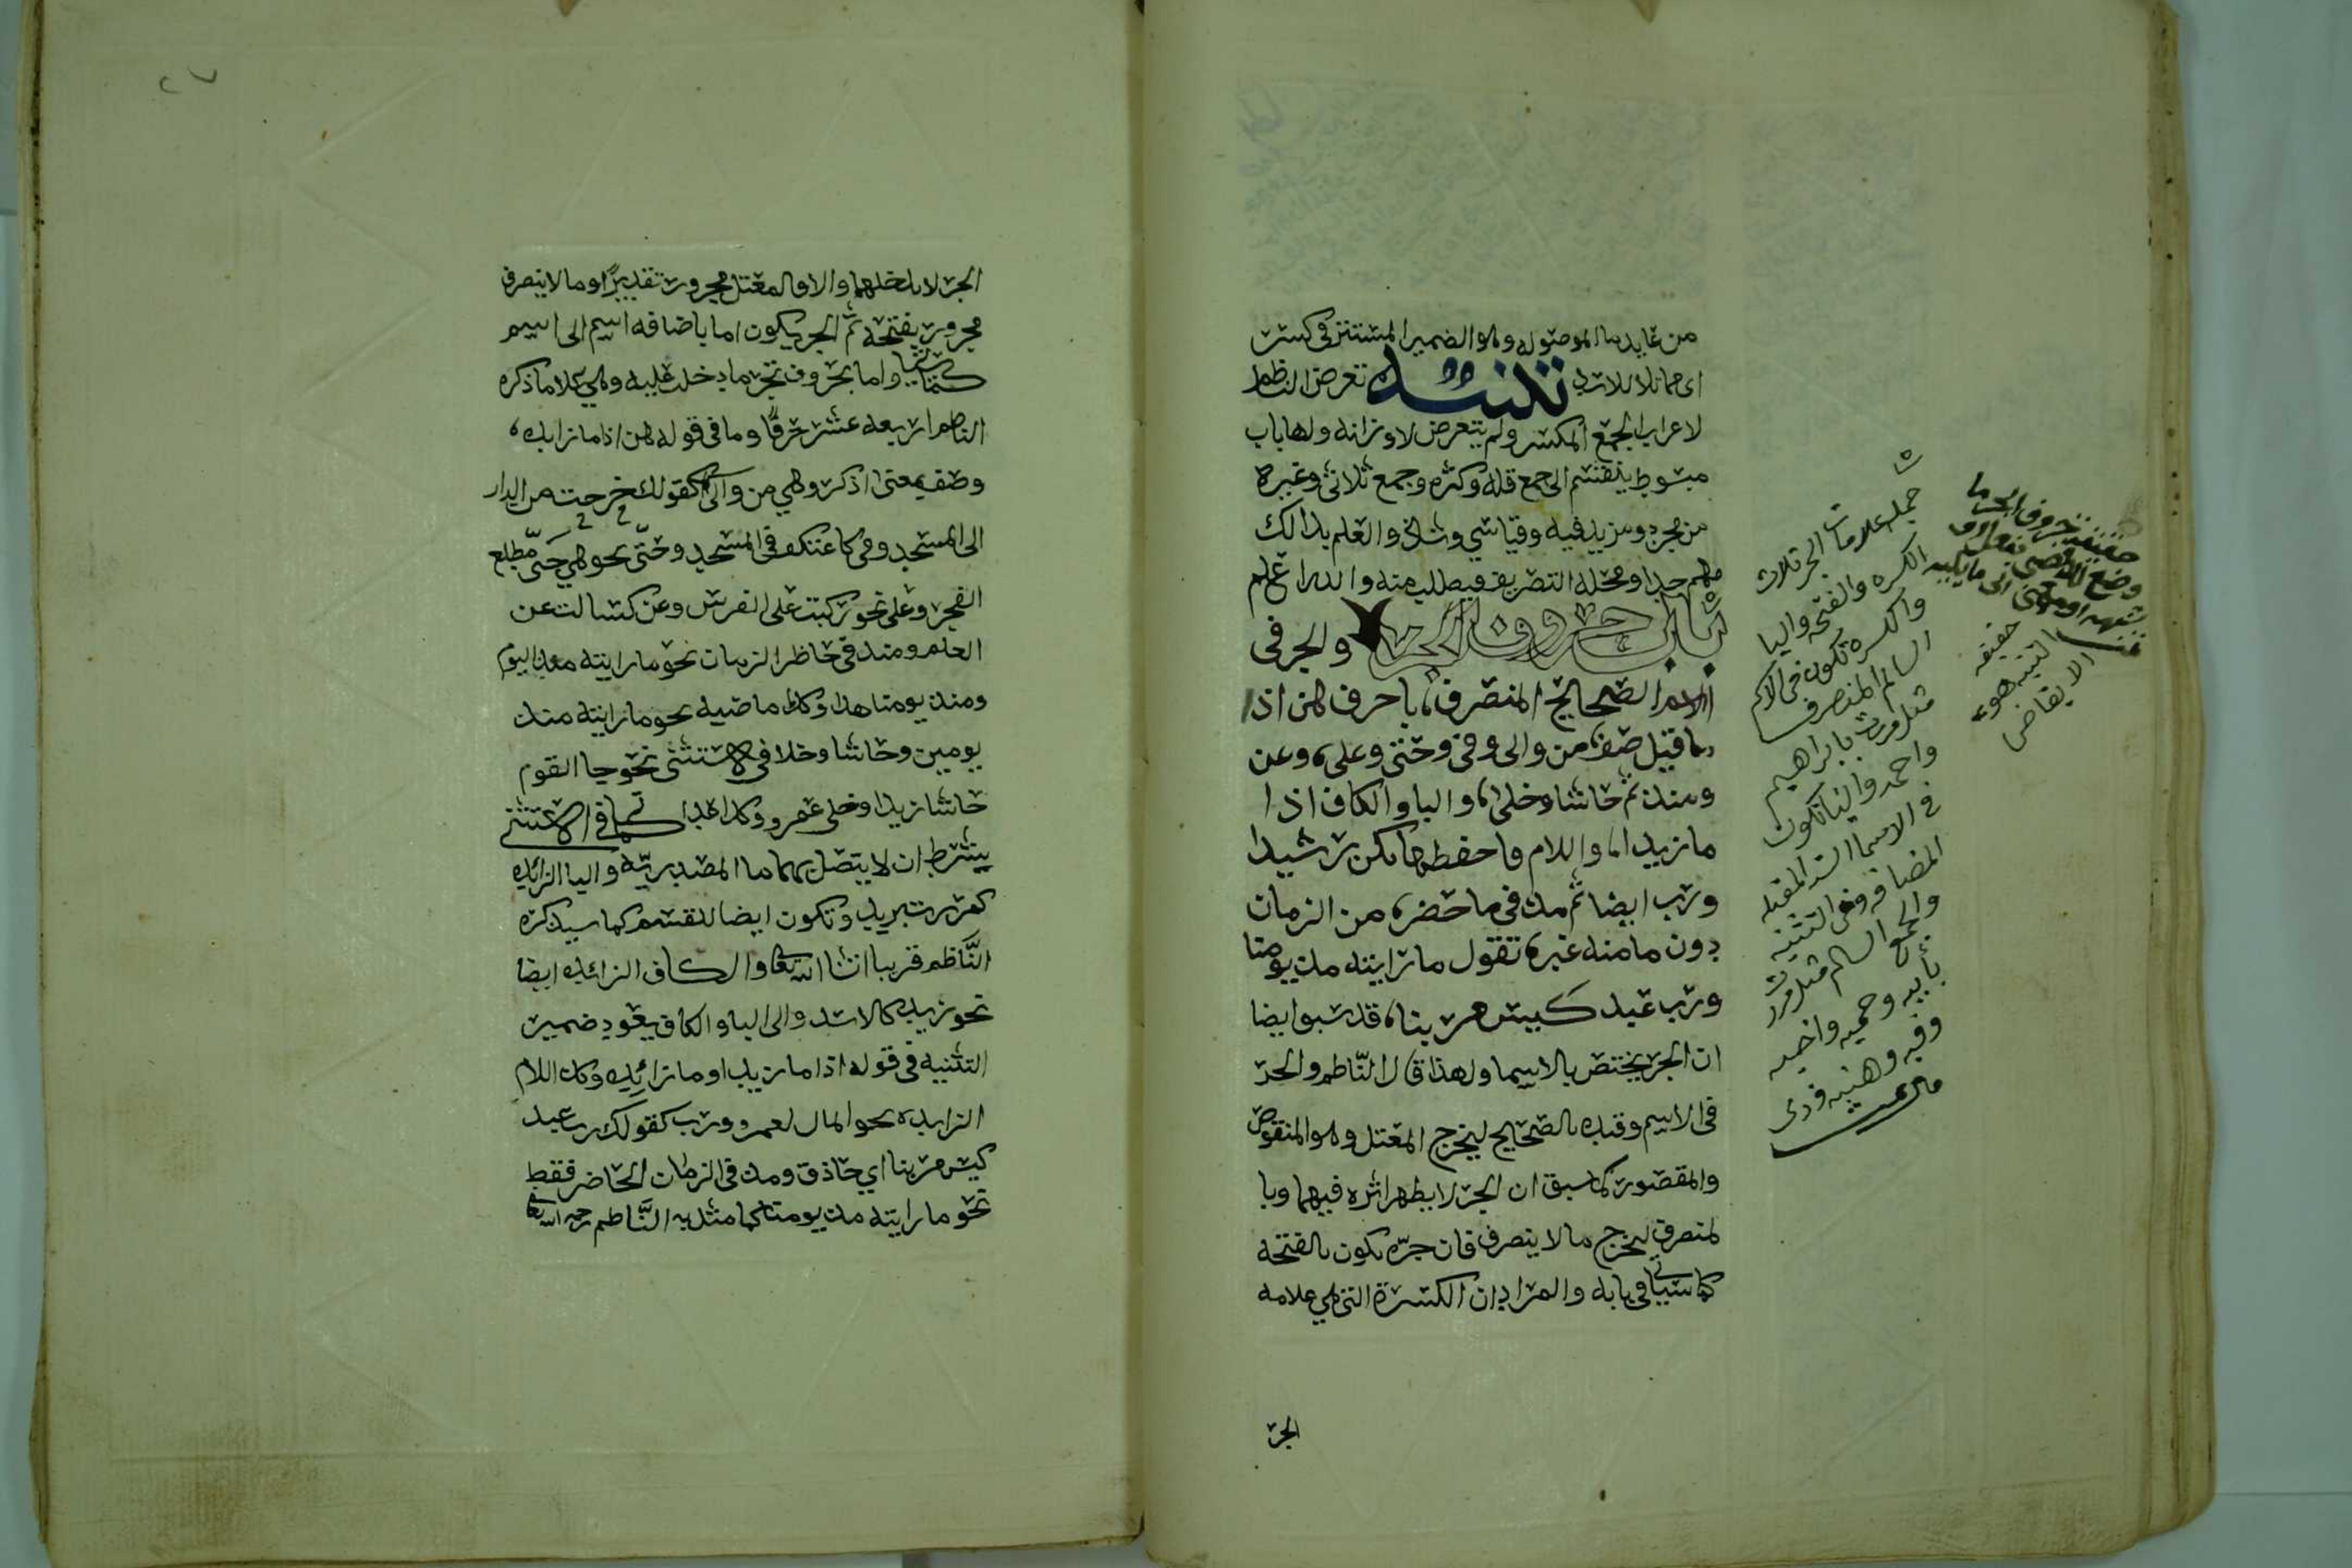 من عايد ما الموصوله وهو الضمير المستتر في كسر
اي مماثلا للاسد تنبيه تعرض الناظم
لاعراب الجمع المكسر ولم يتعرض لاوزانه ولها باب
مبسوط ينقسم الى جمع قله وكثره وجمع ثلاثي وغيره
من مجرد ومزيد فيه وقياسي وشاذ والعلم بذالك
مهم جدا ومحله التصريف فيطلب منه والله اعلم
باب حروف الجر والجر في
الاسم الصحيح المنصرف، باحرف هن اذا
ما قيل صف، من والى وفي وحتى وعلى، وعن
ومنذ ثم حاشا وخلى، والبا والكاف اذا
ما زيدا، واللام فاحفظها تكن رشيدا
ورب ايضا ثم مذ في ما حضر، من الزمان
دون ما منه غبر، تقول ما رايته مذ يومنا
ورب عبد كيس مر بنا، قد سبق ايضا
ان الجر يختص بالاسما ولهذا قال الناظم والجر
في الاسم وقيده بالصحيح ليخرج المعتل وهو المنقوص
والمقصور كما سبق ان الجر لا يظهر اثره فيهما وبا
لمنصرف ليخرج ما لا ينصرف فان جره يكون بالفتحه
كما سياتي في بابه والمراد ان الكسرة التي هي علامه
الجر
جمله علامات الجر ثلاث
الكسره والفتحه واليا
واكسره تكون في الاسم
السالم المنصرف
مثل مررت بابراهيم
واحمد واليا تكون
في الاسما الستة المعتله
المضافه وفي التثنيه
والجمع السالم مثل مررت
بأبيه وحميه واخيه
وفيه وهنيه وذي
مال تمت
حقيقة حروف الجر ما
وضع للافضى بفعل او
شبهه او معنى الى ما يليه
حقيقه
التنبيه هو
الايقاض
٢٧
الجر لا يدخلهما والاول المعتل مجرور تقديرًا وما لا ينصرف
مجرور بفتحه ثم الجر يكون اما باضافه اسم الى اسم
كما سياتي واما بحروف تجر ما دخلت عليه وهي كلما ذكره
الناظم اربعه عشر حرفًا وما في قوله هن اذا ما زايده
وصف بمعنى اذكر وهي من والى كقولك خرجت من الدار
الى المسجد وفي كاعتكف في المسجد وحتى نحو هي حتى مطلع
الفجر وعلى نحو ركبت على الفرس وعن كسالت عن
العلم ومنذ في حاظر الزمان نحو ما رايته منذ اليوم
ومنذ يومنا هذا وكذا ماضيه نحو ما رايته منذ
يومين وحاشا وخلا في الاستثنى نحو جا القوم
حاشا زيد او خلى عمرو وكذا عدا كما في الاستثنى
يشترط ان لا يتصل بهما ما المصدريّه واليا الزائده
كمررت بزيد وتكون ايضا للقسم كما سيذكره
النّاظم قريبا انشا الله تعالى والكاف الزائده ايضا
نحو زيد كالاسد والى البا والكاف يعود ضمير
التثنيه في قوله اذا ما زيدا وما زائده وكذا اللام
الزايده نحو المال لعمرو ورب كقولك رب عبد
كيس مر بنا اي حاذق ومذ في الزمان الحاضر فقط
نحو ما رايته مذ يومنا كما مثل به النّاظم رحمه الله تعالى